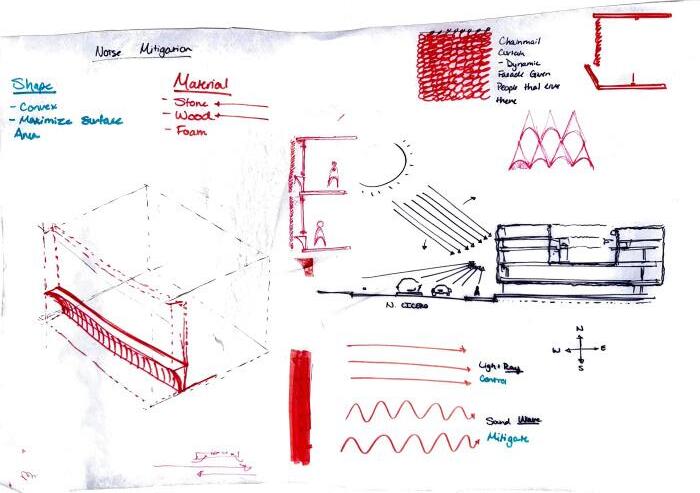 Noise Mitigation
Shape
- Convex
- Maximize Surface
Area
Material
- Stone
- Wood
- Foam
Chainmail
Curtain
- Dynamic
Facade Given
People that live
there
N. CICERO
N
W E
S
Light Ray
Control
Sound Wave
Mitigate